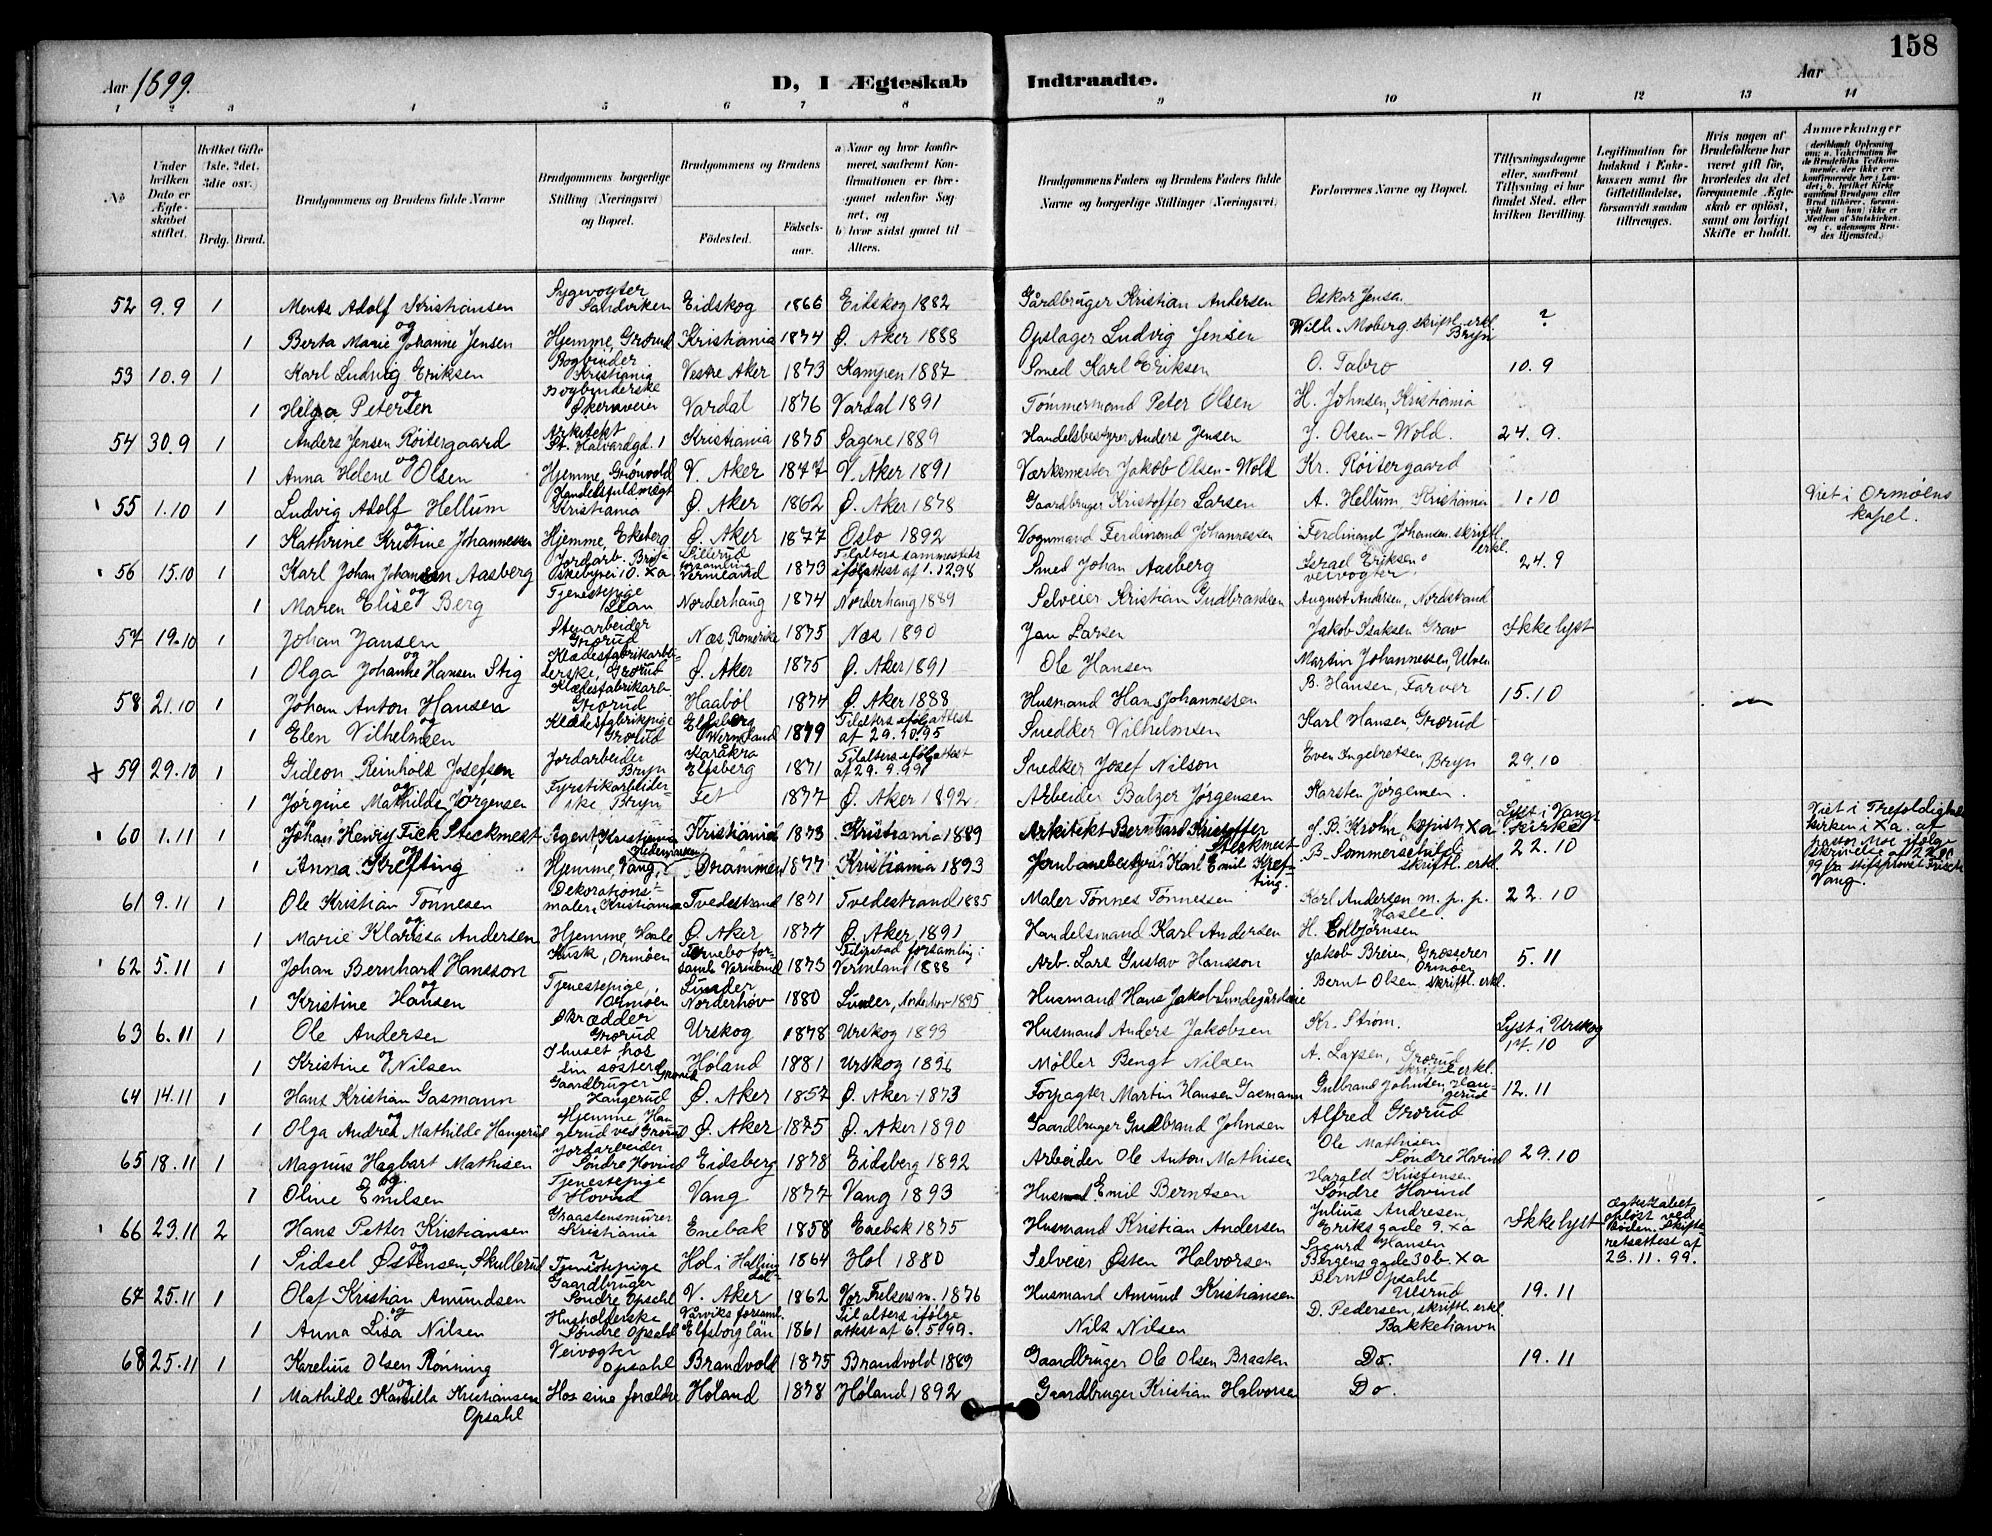 158
Aar 1899.
D, I Ægteskab Indtraadte.
Aar
1 2 3 4 5 6 7 8 9 10 11 12 13 14
No
Under hvilken Dato er Ægteskabet stiftet.
Hvilket Gifte (1ste, 2det, 3die osv.)
Brdg. Brud.
Brudgommens og Brudens fulde Navne
Brudgommens borgerlige Stilling (Næringsvei) og Bopæl.
Brudgommens og Brudens
Födested. Födselsaar.
a) Naar og hvor konfirmeret, saafremt Konfirmationen er foregaaet udenfor Sognet, og
b) hvor sidst gaaet til Alters.
Brudgommens Faders og Brudens Faders fulde Navne og borgerlige Stillinger (Næringsvei)
Forlovernes Navne og Bopæl.
Tillysningsdagene eller, saafremt Tillysning ei har fundet Sted, efter hvilken Bevilling.
Legitimation for Indskud i Enkekassen samt for Giftetilladelse, forsaavidt saadan tiltrænges.
Hvis nogen af Brudefolkene har været gift för, hvorledes da det foregaaende Ægteskab er oplöst, samt om lovligt Skifte er holdt.
Anmærkninger
52 9.9 1 Ments Adolf Kristiansen Sygevogter Sandviken Eidskog 1866 Eidskog 1882 Gårdbruger Kristian Andersen Oskar Jensen
og
1 Berta Marie Johanne Jensen Hjemme, Grorud Kristiania 1874 Ø. Aker 1888 Opslager Ludvig Jensen Wilh. Moberg skriftl. erkl. Bryn ?
53 10.9 1 Karl Ludvig Eriksen Bogbinder Kristiania Vestre Aker 1873 Kampen 1887 Smed Karl Eriksen O. Tabro 10.9
og
1 Helga Petersen Bogbinderske Økernveien Vardal 1876 Vardal 1891 Tømmermand Peter Olsen H. Johnsen, Kristiania
54 30.9 1 Anders Jensen Røitergaard Arkitekt St. Halvardgd. 1 Kristiania 1875 Sagene 1889 Handelsbestyrer Anders Jensen J. Olsen-Wold. 24.9.
og
1 Anna Helene Olsen Hjemme, Grønvold V. Aker 1877 V. Aker 1891 Værkemester Jakob Olsen-Wold Kr. Røitergaard
55 1.10 1 Ludvig Adolf Hellum Handelsfuldmægt Kristiania Ø. Aker 1862 Ø. Aker 1878 Gaardbruger Kristoffer Larsen A. Hellum, Kristiania 1.10 Viet i Ormøens kapel.
og
1 Kathrine Kristine Johannessen Hjemme, Ekeberg Ø. Aker 1877 Oslo 1892 Vognmand Ferdinand Johannessen Ferdinand Johansen skriftl. erkl.
56 15.10 1 Karl Johan Johansen Aasberg Jordarb. 10. Xa Vermland 1873 Tilalters sammesteds ifølattest af 1.12.98 Smed Johan Aasberg Israel Eriksen veivogter 24.9
og
1 Maren Elise Berg Tjenestepige Norderhaug 1874 Norderhaug 1889 Selveier Kristian Gudbrandsen August Andersen, Nordstrand
57 19.10 1 Johan Jansen Stenarbeider Grorud Næs, Romerike 1875 Næs 1890 Jan Larsen Jakob Isaksen Grav Ikke lyst
og
1 Olga Johanne Hansen Stig Klædesfabrikarbeiderske, Grorud Ø. Aker 1875 Ø. Aker 1891 Ole Hansen Martin Johannessen, Ulven
58 21.10 1 Johan Anton Hansen Klædesfabrikarb. Grorud Haabøl 1874 Ø. Aker 1888 Husmand Hans Johannessen B. Hansen, Farver 15.10
og
1 Elen Vilhelmsen Klædesfabrikpige Grorud Elfsberg Wermland 1879 Tilalters ifølg attest af 29.10.95 Snedker Vilhelmsen Karl Hansen, Grorud
59 29.10 1 Gideon Reinhold Josefsen Jordarbeider Bryn Karåkra Elfsberg 1871 Tilalters ifølg attest af 29.9.99 Snedker Josef Nilson Even Ingebretsen, Bryn 29.10
og
1 Jørgine Mathilde Jørgensen Fyrstikarbeiderske Bryn Fet 1877 Ø. Aker 1892. Arbeider Balzer Jørgensen Karsten Jørgensen.
60 1.11 1 Johan Henry Fick Steckmest Agent, Kristiania Kristiania 1873 Kristiania 1889 Arkitekt Bernhard Kristoffer Steckmest J. B. Krohn, kopist Xa Lyst i Vangs kirke 22.10 Viet i Trefoldighedskirken i Xa. af
og
1 Anna Krefting Hjemme, Vang, Hedemarken Drammen 1877 Kristiania 1893 Jernbanebestyrer Karl Emil Krefting. B. Sommerschild skriftl. erkl. Vang.
61 9.11 1 Ole Kristian Tønnesen Dekorationsmaler, Kristiania Tvedestrand 1871 Tvedestrand 1885 Maler Tønnes Tønnessen Karl Andersen m. p. p. Hasle. 22.10
og
1 Marie Klarissa Andersen Hjemme, Hasle Ø. Aker 1877 Ø. Aker 1891 Handelsmand Karl Andersen H. Esbjørnsen
62 5.11 1 Johan Bernhard Hansson Kusk, Ormøen Fernebo forsaml. Vermland 1873 Filipstad forsamling: Vermland 1888 Arb. Lars Gustav Hansson Jakob Breien, Grosserer Ormøen 5.11
og
1 Kristine Hansen Tjenestepige, Ormøen Lunder Norderhov 1880 Lunder, Norderhov 1895 Husmand Hans Jakob Lundegårdseie Bernt Olsen, skriftl. erkl.
63 6.11 1 Ole Andersen Skrædder Grorud Urskog 1878 Urskog 1893 Husmand Anders Jakobsen Kr. Strøm. Lyst i Urskog 17.10
og
1 Kristine Nilsen I huset hos sin søster Grorud Høland 1881 Urskog 1896 Møller Bengt Nilsen A. Larsen, Grorud skriftl. erkl.
64 14.11 1 Hans Kristian Gasmann Gaardbruger Haugerud Ø. Aker 1857 Ø. Aker 1873 Forpagter Martin Hansen Gasmann Gulbrand Johnsen, Haugerud 12.11
og
1 Olga Andrea Mathilde Haugerud Hjemme, Haugerud ved Grorud Ø. Aker 1875 Ø. Aker 1890 Gaardbruger Gudbrand Johnsen Alfred Grorud
65 18.11 1 Magnus Hagbart Mathisen Jordarbeider Søndre Hovind Eidsberg 1878 Eidsberg 1892 Arbeider Ole Anton Mathisen Ole Mathisen Søndre Hovind 29.10
og
1 Oline Emilsen Tjenestepige Hovind Vang 1877 Vang 1893 Husmand Emil Berntsen Harald Kristensen Søndre Hovind
66 23.11 2 Hans Petter Kristiansen Graastensmurer Kristiania Enebak 1858 Enebak 1875 Husmand Kristian Andersen Julius Andresen, Eriks gade 9. Xa Ikke lyst Ægteskabet opløst ved Døden. Skifteretsattest af 23.11.99.
og
1 Sidsel Østensen, Skullerud Tjenestepige Hol i Hallingdal 1864 Hol 1880 Selveier Østen Halvorsen Sigurd Hansen Bergens gade 30 b. Xa
67 25.11 1 Olaf Kristian Amundsen Gaardbruger Søndre Opsahl V. Aker 1862 Vor Frelsers m. 1876 Husmand Amund Kristiansen Bernt Opsahl Ulsrud 19.11
og
1 Anna Lisa Nilsen Husholderske Søndre Opsahl Vårviks forsaml. Elfsborg län 1861 Til alters ifølge attest af 6.5.99. Nils Nilsen D. Pedersen, skriftl. erkl. Bakkehavn
68 25.11 1 Karelius Olsen Rønning Veivogter Opsahl Brandvold 1875 Brandvold 1889 Gaardbruger Ole Olsen Braaten Do. 19.11
og
1 Mathilde Kamilla Kristiansen Opsahl Hos sine forældre Høland 1878 Høland 1892 Gaardbruger Kristian Halvorsen Do